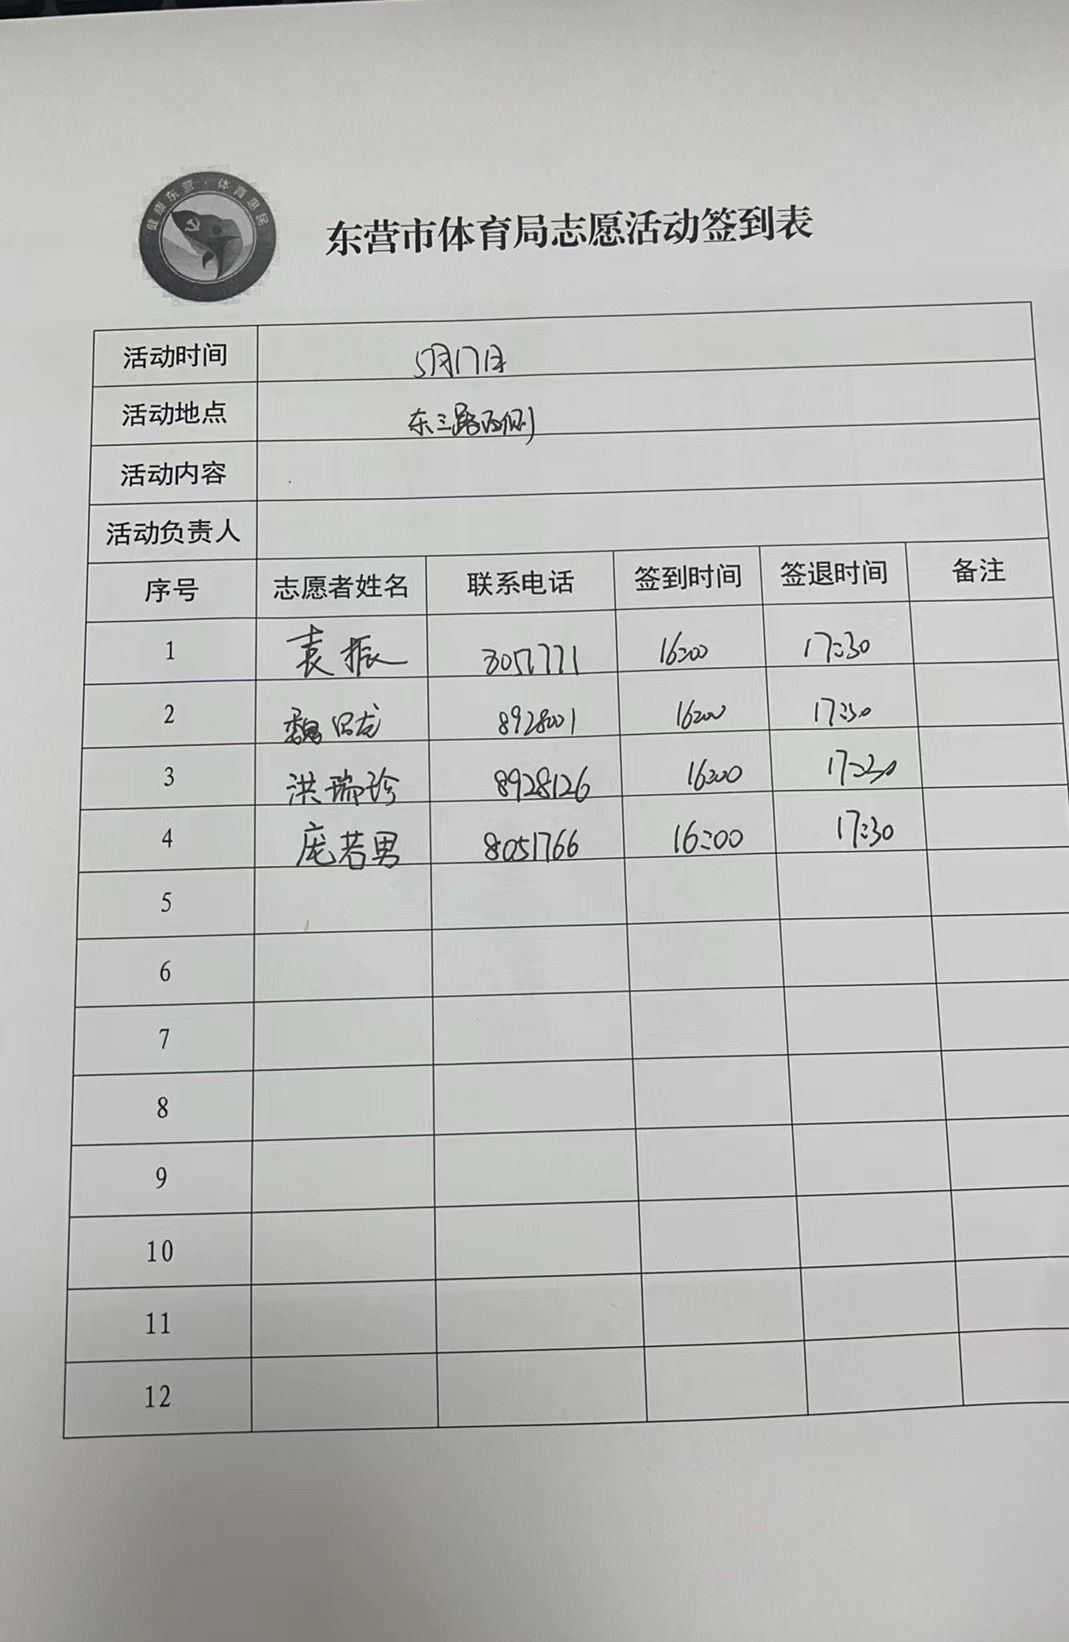 健康东营·体育惠民
东营市体育局志愿活动签到表
活动时间 5月17日
活动地点 东三路西侧
活动内容
活动负责人
序号 志愿者姓名 联系电话 签到时间 签退时间 备注
1 袁振 16:00 17:30
2 魏 8928001 16:00 17:30
3 洪瑞珍 8928126 16:00 17:30
4 庞若男 8051766 16:00 17:30
5
6
7
8
9
10
11
12